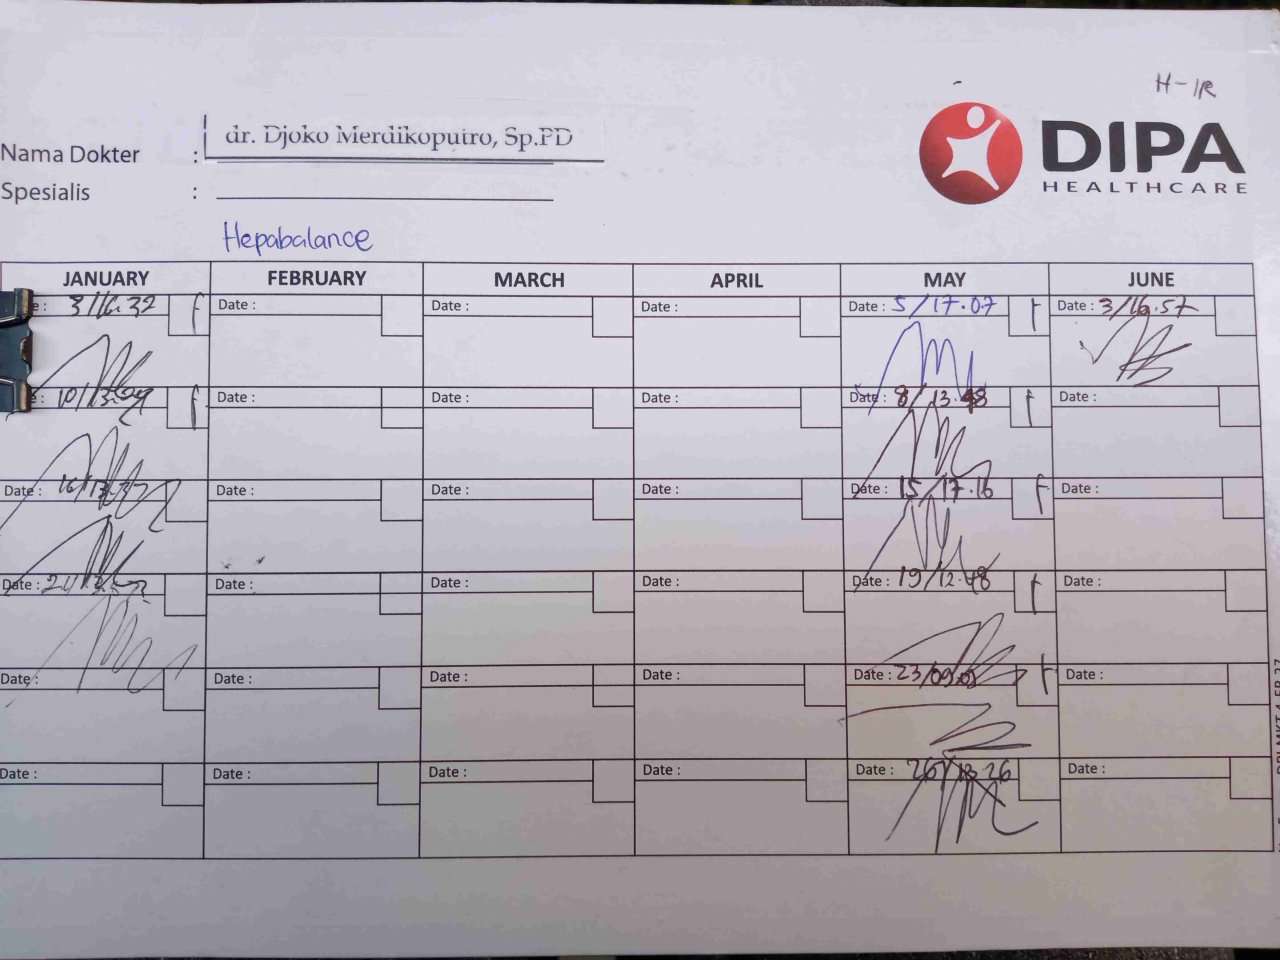 H-IR
DIPA
HEALTHCARE
Nama Dokter : dr. Djoko Merdikoputro, Sp.PD
Spesialis :
Hepabalance
JANUARY FEBRUARY MARCH APRIL MAY JUNE
3/16.32 f Date : Date : Date : Date : 5/17.07 f Date : 3/16.57
10/ f Date : Date : Date : Date : 8/13.48 f Date :
Date : 16/13.37 Date : Date : Date : Date : 15/17.16 f Date :
Date : 24/ Date : Date : Date : Date : 19/12.48 f Date :
Date : Date : Date : Date : Date : 23/09.01 f Date :
Date : Date : Date : Date : Date : 26/13.26 Date :